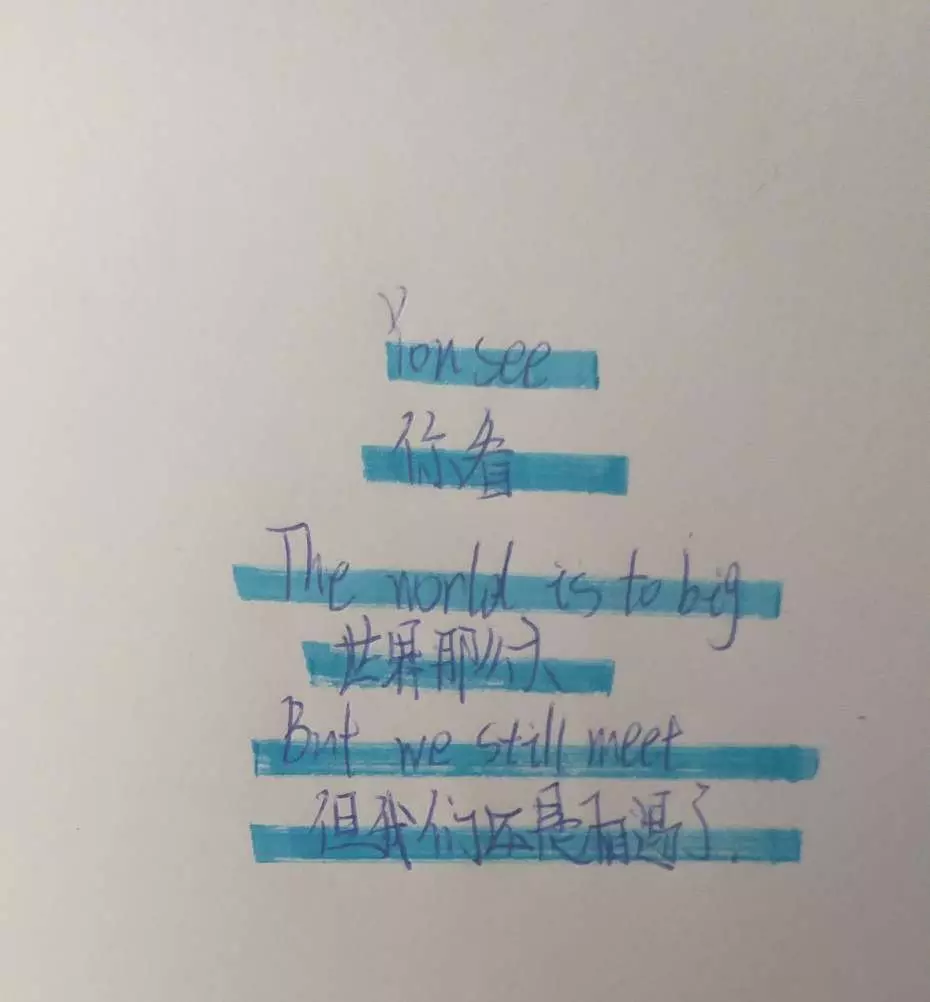 You see
你看
The world is to big
世界那么大
But we still meet
但我们还是相遇了.